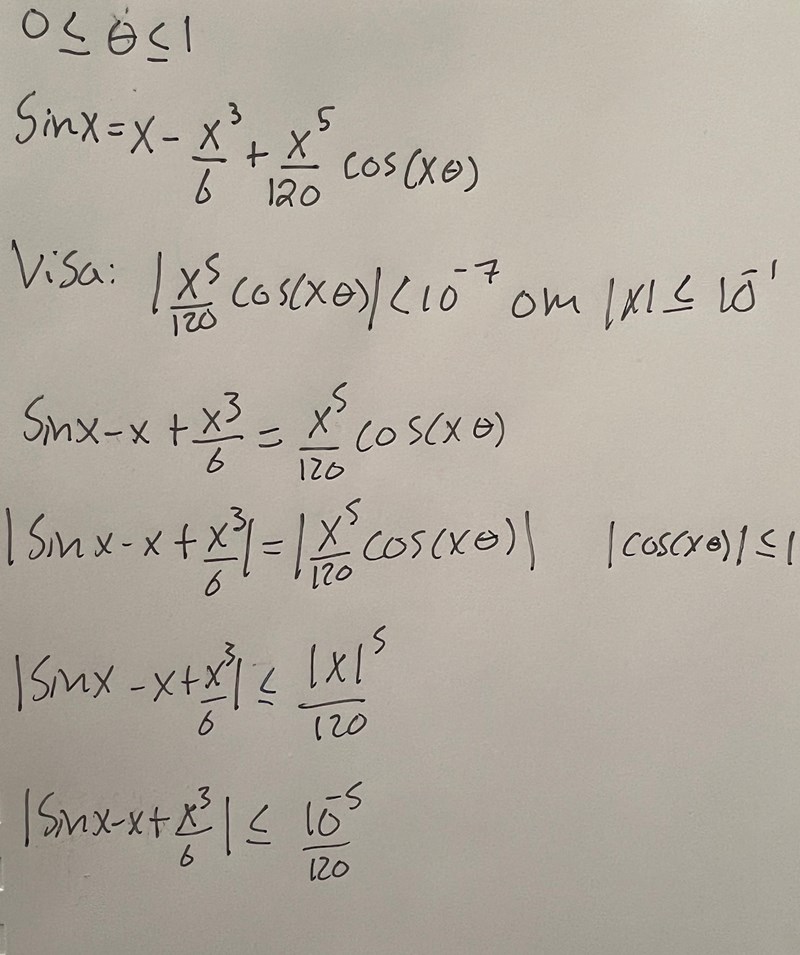 0 ≤ θ ≤ 1
Sinx = x - x³/6 + x⁵/120 cos(xθ)
Visa: |x⁵/120 cos(xθ)| < 10⁻⁷ om |x| ≤ 10⁻¹
Sinx - x + x³/6 = x⁵/120 cos(xθ)
|Sinx - x + x³/6| = |x⁵/120 cos(xθ)| |cos(xθ)| ≤ 1
|Sinx - x + x³/6| ≤ |x|⁵/120
|Sinx - x + x³/6| ≤ 10⁻⁵/120